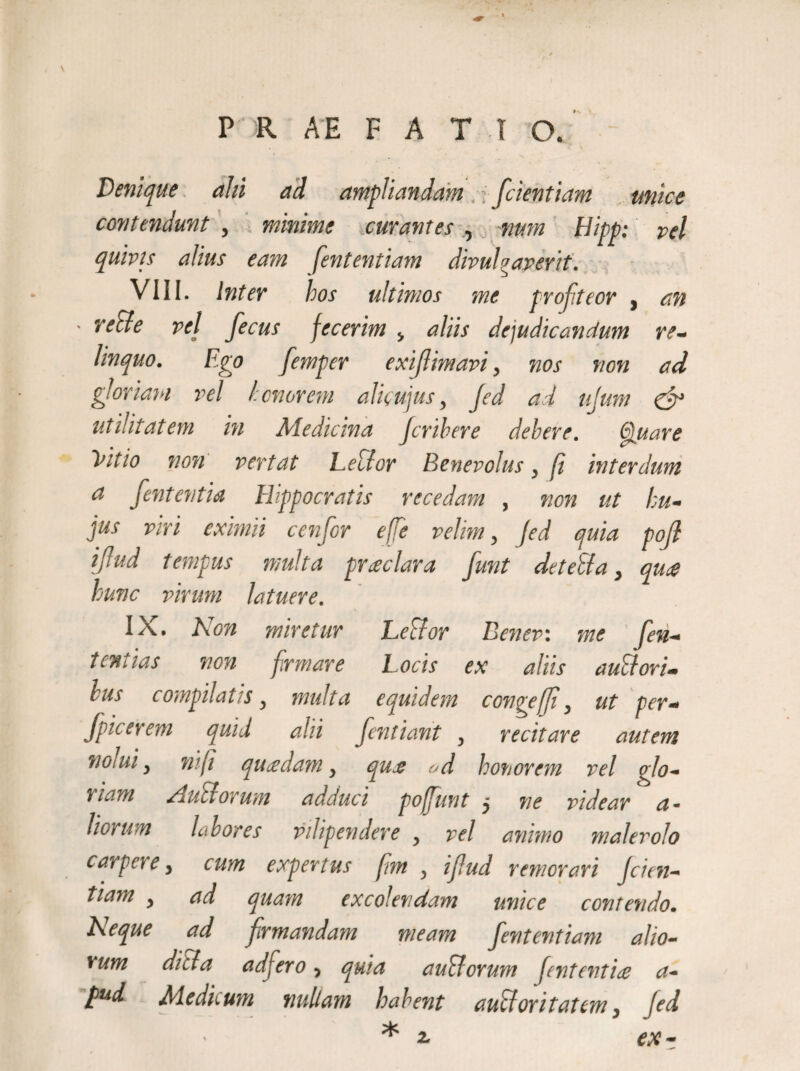 PRAEFATIO.
Denique alii ad ampliandam ſcientiam unice
contendunt, minime curantes, num Hipp: vel
quivis alius eam ſententiam divulgaverit.
VIII. Inter hos ultimos me profiteor, an
recte vel ſecus fecerim, aliis dejudicandum re-
linquo. Ego ſemper exiſtimavi, nos non ad
gloriam vel honorem alicujus, ſed ad uſum &
utilitatem in Medicina ſcribere debere. Quare
vitio non vertat Lector Benevolus, ſi interdum
a ſententia Hippocratis recedam, non ut hu-
jus viri eximii cenſor eſſe velim, ſed quia poſt
iſtud tempus multa præclara ſunt detecta, quæ
hunc virum latuere.
IX. Non miretur Lector Benev: me ſen-
tentias non firmare Locis ex aliis auctori-
bus compilatis, multa equidem congeſſi, ut per-
ſpicerem quid alii ſentiant, recitare autem
nolui, niſi quædam, quæ ad honorem vel glo-
riam Auctorum adduci poſſunt; ne videar a-
liorum labores vilipendere, vel animo malevolo
carpere, cum expertus ſim, iſtud remorari ſcien-
tiam, ad quam excolendam unice contendo.
Neque ad firmandam meam ſententiam alio-
rum dicta adfero, quia auctorum ſententiæ a-
pud Medicum nullam habent auctoritatem, ſed
* 2 ex-